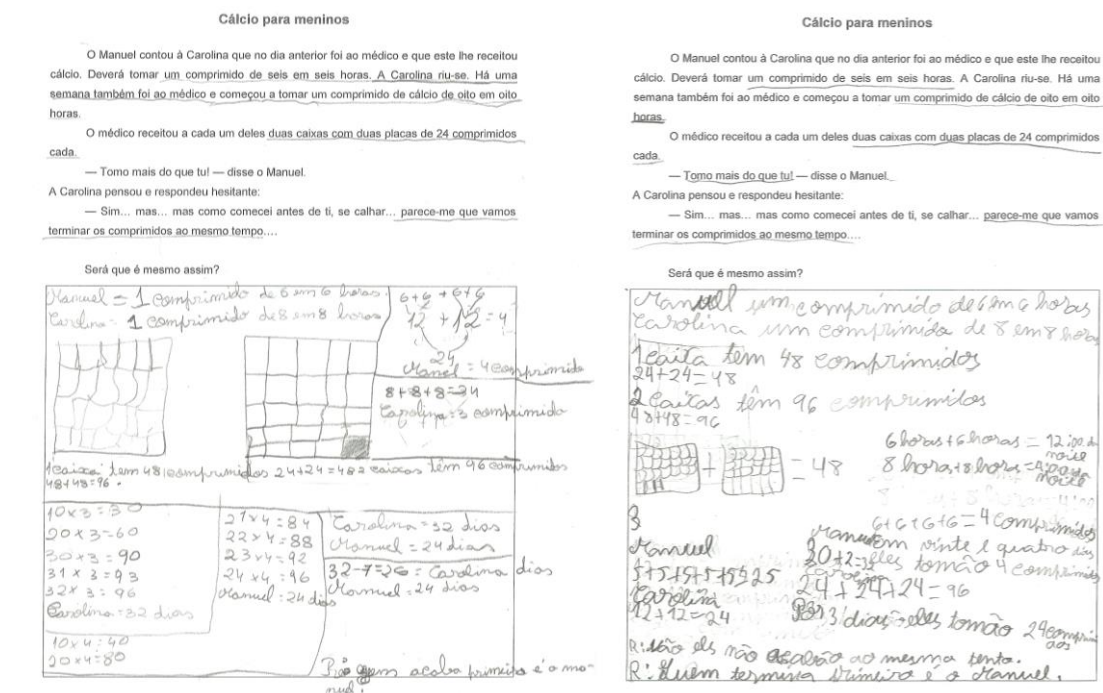 Cálcio para meninos
O Manuel contou à Carolina que no dia anterior foi ao médico e que este lhe receitou
cálcio. Deverá tomar um comprimido de seis em seis horas. A Carolina riu-se. Há uma
semana também foi ao médico e começou a tomar um comprimido de cálcio de oito em oito
horas.
O médico receitou a cada um deles duas caixas com duas placas de 24 comprimidos
cada.
— Tomo mais do que tu! — disse o Manuel.
A Carolina pensou e respondeu hesitante:
— Sim... mas... mas como comecei antes de ti, se calhar... parece-me que vamos
terminar os comprimidos ao mesmo tempo....
Será que é mesmo assim?
Manuel = 1 comprimido de 6 em 6 horas
Carolina = 1 comprimido de 8 em 8 horas
6+6 + 6+6
12 + 12 = 4
24
Manel = 4 comprimido
8+8+8=24
Carolina = 3 comprimido
1 caixa tem 48 comprimidos 24+24=48 2 caixas têm 96 comprimidos
48+48=96.
10x3=30
20x3=60
30x3=90
31x3=93
32x3=96
Carolina=32 dias
10x4=40
20x4=80
21x4=84
22x4=88
23x4=92
24x4=96
Manuel=24 dias
Carolina=32 dias
Manuel=24 dias
32-7=26=Carolina dias
Manuel=24 dias
quem acaba primeiro é o ma-
nuel.
Cálcio para meninos
O Manuel contou à Carolina que no dia anterior foi ao médico e que este lhe receitou
cálcio. Deverá tomar um comprimido de seis em seis horas. A Carolina riu-se. Há uma
semana também foi ao médico e começou a tomar um comprimido de cálcio de oito em oito
horas.
O médico receitou a cada um deles duas caixas com duas placas de 24 comprimidos
cada.
— Tomo mais do que tu! — disse o Manuel.
A Carolina pensou e respondeu hesitante:
— Sim... mas... mas como comecei antes de ti, se calhar... parece-me que vamos
terminar os comprimidos ao mesmo tempo....
Será que é mesmo assim?
Manuel um comprimido de 6 em 6 horas
Carolina um comprimido de 8 em 8 horas
1 caixa tem 48 comprimidos
24+24=48
2 caixas têm 96 comprimidos
48+48=96
+ = 48
6 horas+6horas = 12:00 da
noite
8 hora+8hora=
noite
6+6+6+6=4 comprimidos
Manuel
em vinte e quatro
eles tomão 4 comprimidos
5+5+5+5+5=25
30+2=
Carolina
12+12=24
24+24+24=96
3 dias eles tomão 24 comprimi
dos
R: não eles não acabão ao mesmo tento.
R: Quem termina primeiro é o Manuel.